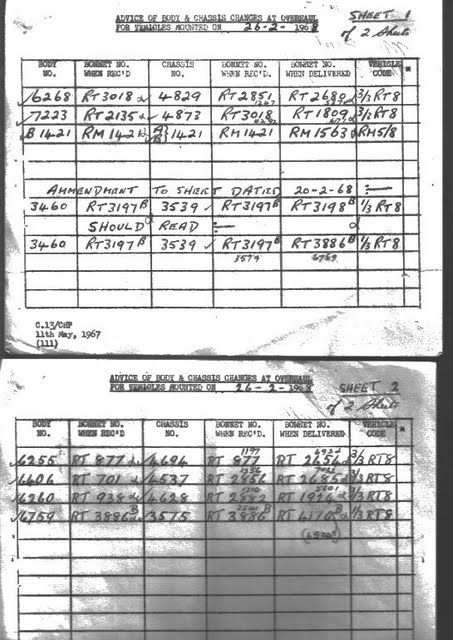 ADVICE OF BODY & CHASSIS CHANGES AT OVERHAUL SHEET 1
FOR VEHICLES MOUNTED ON 26-2-1968 of 2 Sheets
BODY NO. BONNET NO. WHEN REC'D CHASSIS NO. BONNET NO. WHEN REC'D. BONNET NO. WHEN DELIVERED VEHICLE CODE *
✓6268 RT3018 ✓4829 RT2851 RT2680 3/3 RT8
✓7223 RT2135 ✓4873 RT3018 RT1809 3/3 RT8
✓B1421 RM1421 A) B) 1421 RM1421 RM1563 RM5/8
AMMENDMENT TO SHEET DATED 20-2-68 :—
3460 RT3197B 3539 RT3197B RT3198B 1/3 RT8
SHOULD READ :—
3460 RT3197B 3539 RT3197B RT3886B 1/3 RT8
3579 6769
C.13/CHP
11th May, 1967
(111)
ADVICE OF BODY & CHASSIS CHANGES AT OVERHAUL SHEET 2
FOR VEHICLES MOUNTED ON 26-2-1968 of 2 Sheets
BODY NO. BONNET NO. WHEN REC'D CHASSIS NO. BONNET NO. WHEN REC'D. BONNET NO. WHEN DELIVERED VEHICLE CODE *
✓6255 RT 877 ✓4694 RT 877 RT 2654 3/3 RT8
✓6406 RT 701 ✓4537 RT 2856 RT 2685 3/3 RT8
✓6260 RT 938 ✓4628 RT 2882 RT 1924 3/3 RT8
✓6759 RT 3886B ✓3575 RT 3886B RT 4176B 1/3 RT8